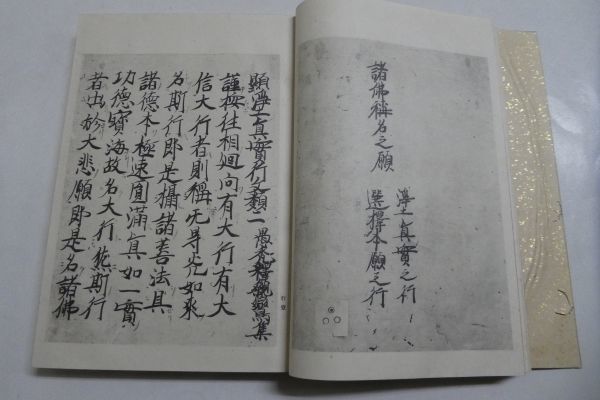 諸佛稱名之願
淨土真實之行
選擇本願之行
顯淨土真實行文類二 愚禿釋親鸞集
謹按往相廻向有大行有大
信大行者則稱无㝵光如來
名斯行即是攝諸善法具
諸德本極速圓滿真如一實
功德寶海故名大行然斯行
者出於大悲願即是名諸佛